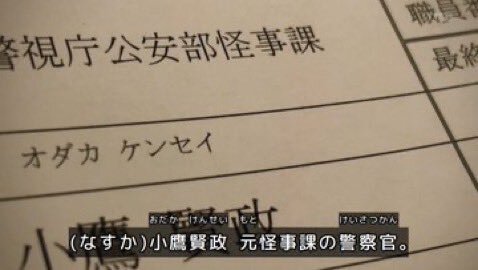 職員
最終
警視庁公安部怪事課
オダカ ケンセイ
小鷹 賢政
おだか けんせい もと けいさつかん
(なすか)小鷹賢政 元怪事課の警察官。